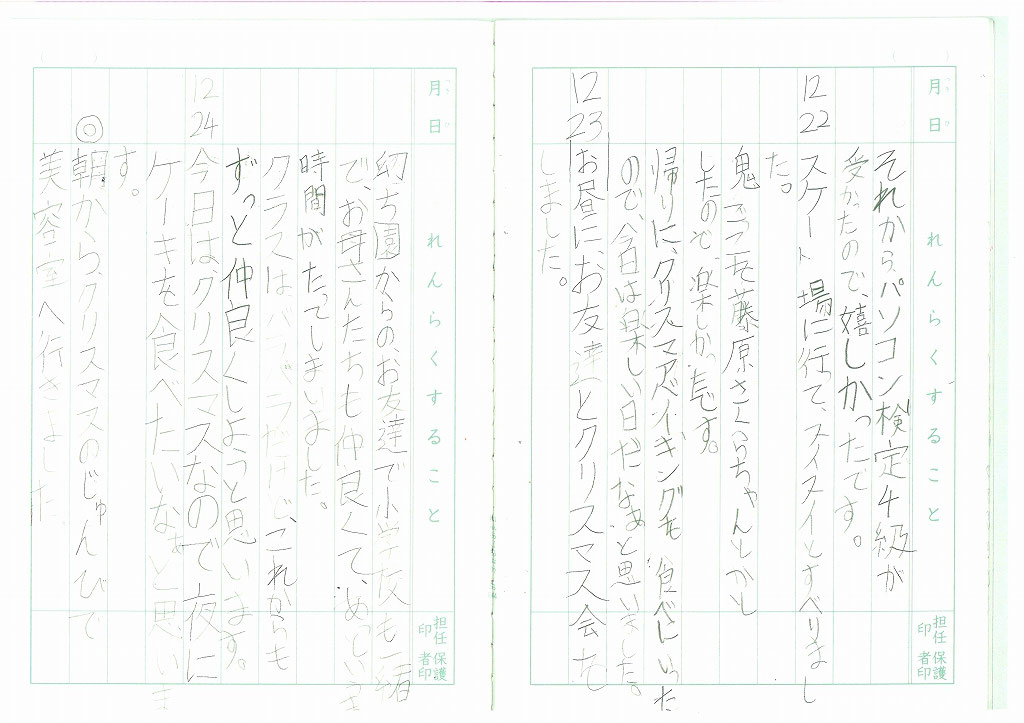 月日 れんらくすること 担任印 保護者印
それから、パソコン検定4級が
受かったので、嬉しかったです。
12 22 スケート場に行て、スイスイとすべりまし
た。
鬼ごっこを藤原さくらちゃんとかと
したので、楽しかったです。
帰りに、クリスマスバイキングも食べにいった
ので、今日は楽しい日だなぁと思いました。
12 23 お昼に、お友達とクリスマス会を
しました。
月日 れんらくすること 担任印 保護者印
幼ち園からの、お友達で小学校も一緒
で、お母さんたちも仲良くて、あっというま
時間がたってしまいました。
クラスは、バラバラだけど、これからも
ずっと仲良くしようと思います。
12 24 今日は、クリスマスなので夜に
ケーキを食べたいなぁと思いま
す。
◎朝から、クリスマスのじゅんびで
美容室へ行きました